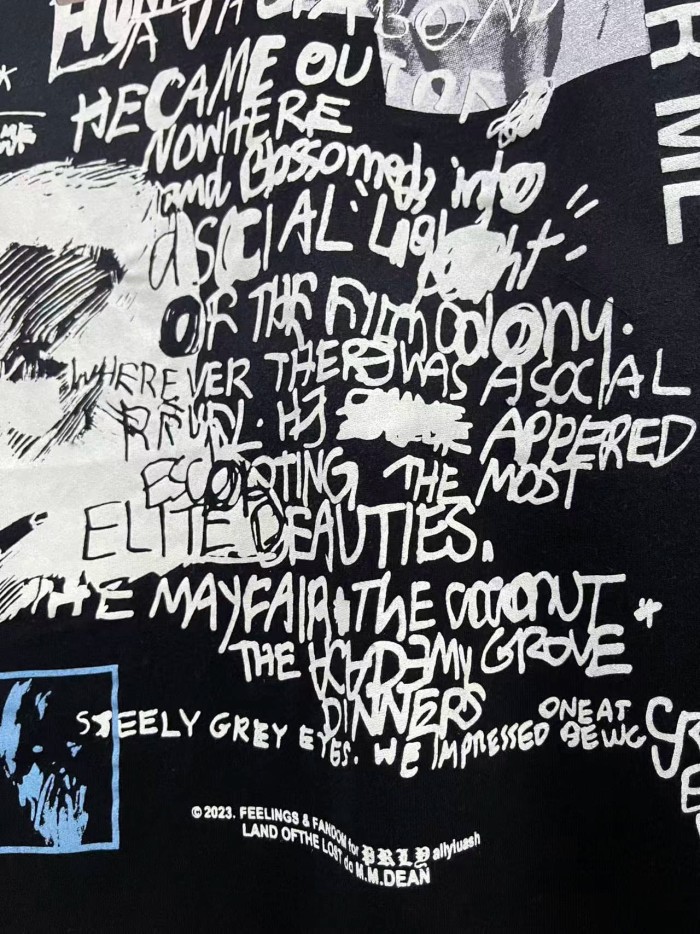 VAGABOND
HE CAME OUT OF
NOWHERE
and blossomed into
a SOCIAL "Light
OF THE Film Colony.
WHEREVER THERE WAS A SOCIAL
HE APPERED
ESCORTING THE MOST
ELITE BEAUTIES.
THE MAYFAIR, THE COCONUT *
THE ACADEMY GROVE
DINNERS
STEELY GREY EYES. WE IMPRESSED ONE AT
© 2023. FEELINGS & FANDOM for PRLY allyluash
LAND OF THE LOST do M.M.DEAN
R ML